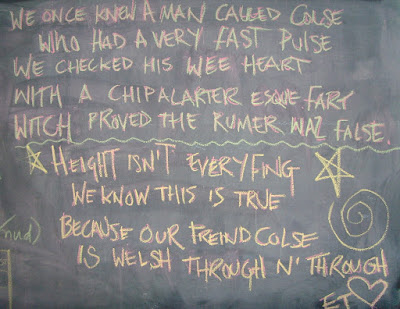 WE ONCE KNEW A MAN CALLED COLSE
WHO HAD A VERY FAST PULSE
WE CHECKED HIS WEE HEART
WITH A CHIPALARTER ESQUE FART
WITCH PROVED THE RUMER WAZ FALSE.
HEIGHT ISN'T EVERYFING
WE KNOW THIS IS TRUE
BECAUSE OUR FREIND COLSE
IS WELSH THROUGH N' THROUGH
ET